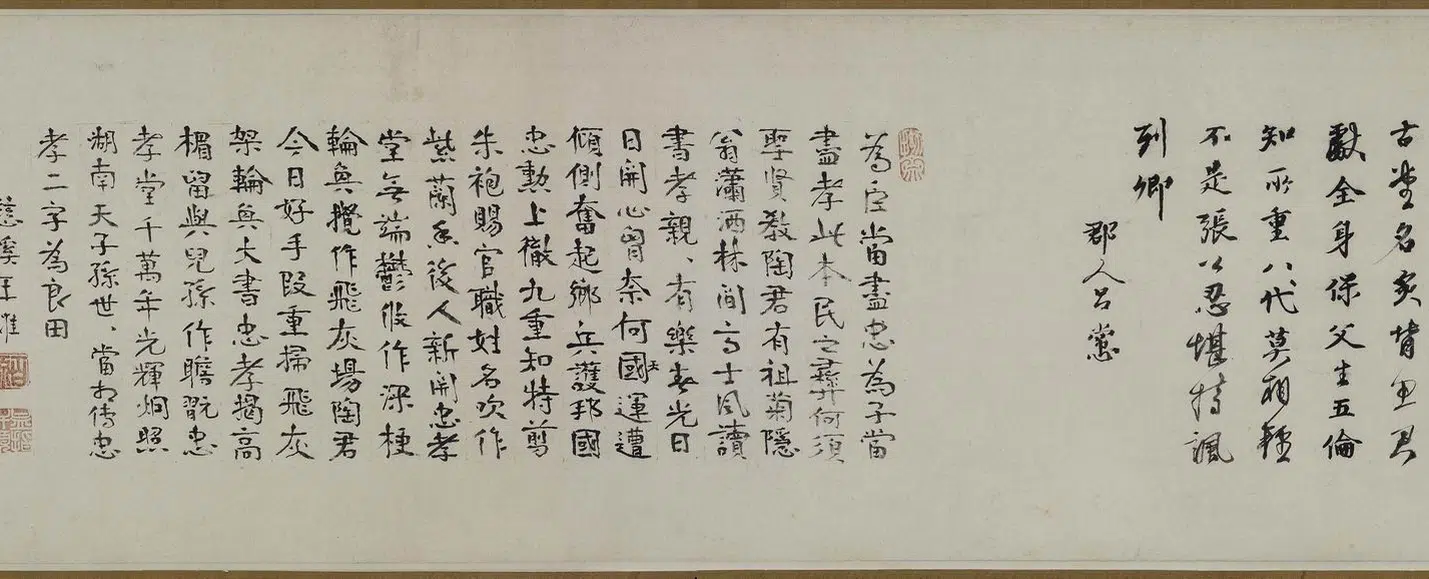 古堂名
獻全身保父生五倫
知所重八代莫相輕
不是張公忍堪持諷
列卿
郡人呂㦂
為臣當盡忠為子當
盡孝此本民之彝何須
聖賢教陶君有祖菊隱
翁瀟洒林間高士風讀
書孝親〻有樂春光日
日開心胷奈何國天運遭
傾側奮起鄉兵護邦國
忠勳上徹九重知特剪
朱袍賜官職姓名吹作
紫蘭香後人新開忠孝
堂無端鬱攸作深梗
輪奐攪作飛灰場陶君
今日好手段重掃飛灰
架輪奐大書忠孝揭高
楣留與兒孫作瞻翫忠
孝堂千萬年光輝炯照
湖南天子孫世〻當相傳忠
孝二字為良田
慈溪王淮